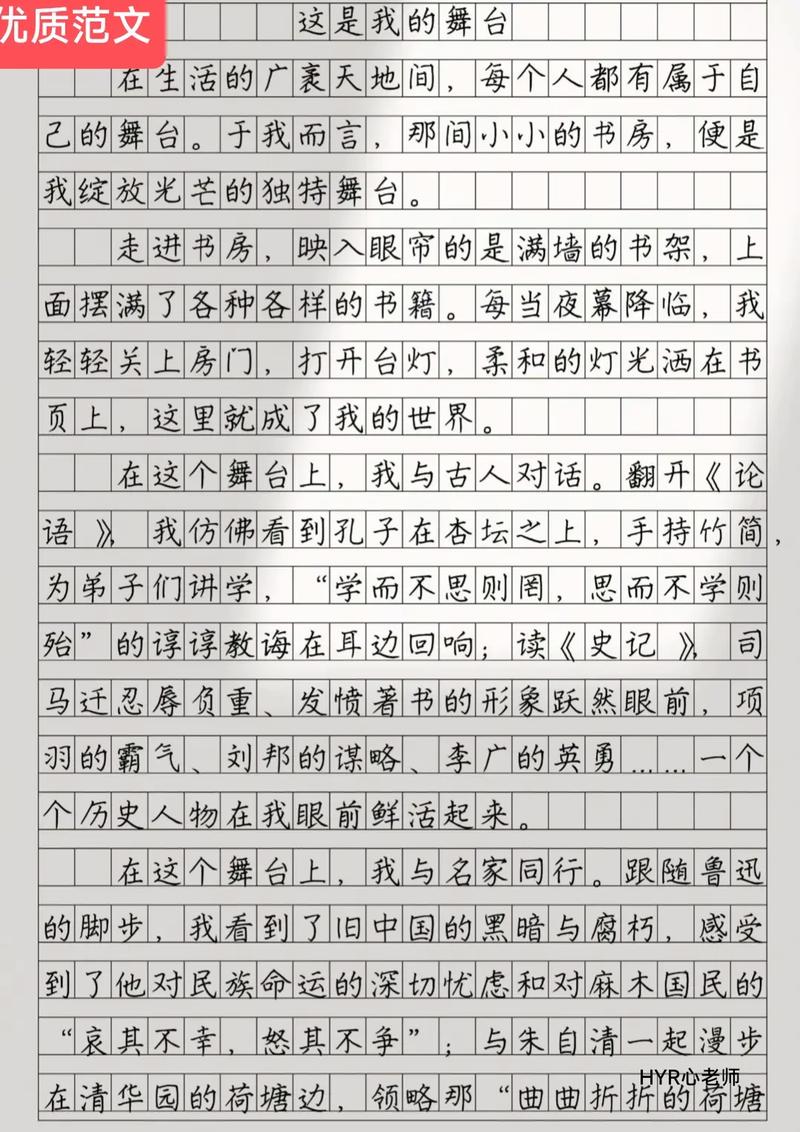 优质范文
这是我的舞台
在生活的广袤天地间，每个人都有属于自
己的舞台。于我而言，那间小小的书房，便是
我绽放光芒的独特舞台。
走进书房，映入眼帘的是满墙的书架，上
面摆满了各种各样的书籍。每当夜幕降临，我
轻轻关上房门，打开台灯，柔和的灯光洒在书
页上，这里就成了我的世界。
在这个舞台上，我与古人对话。翻开《论
语》，我仿佛看到孔子在杏坛之上，手持竹简，
为弟子们讲学，“学而不思则罔，思而不学则
殆”的谆谆教诲在耳边回响；读《史记》，司
马迁忍辱负重、发愤著书的形象跃然眼前，项
羽的霸气、刘邦的谋略、李广的英勇……一个
个历史人物在我眼前鲜活起来。
在这个舞台上，我与名家同行。跟随鲁迅
的脚步，我看到了旧中国的黑暗与腐朽，感受
到了他对民族命运的深切忧虑和对麻木国民的
“哀其不幸，怒其不争”；与朱自清一起漫步
在清华园的荷塘边，领略那“曲曲折折的荷塘
HYR心老师